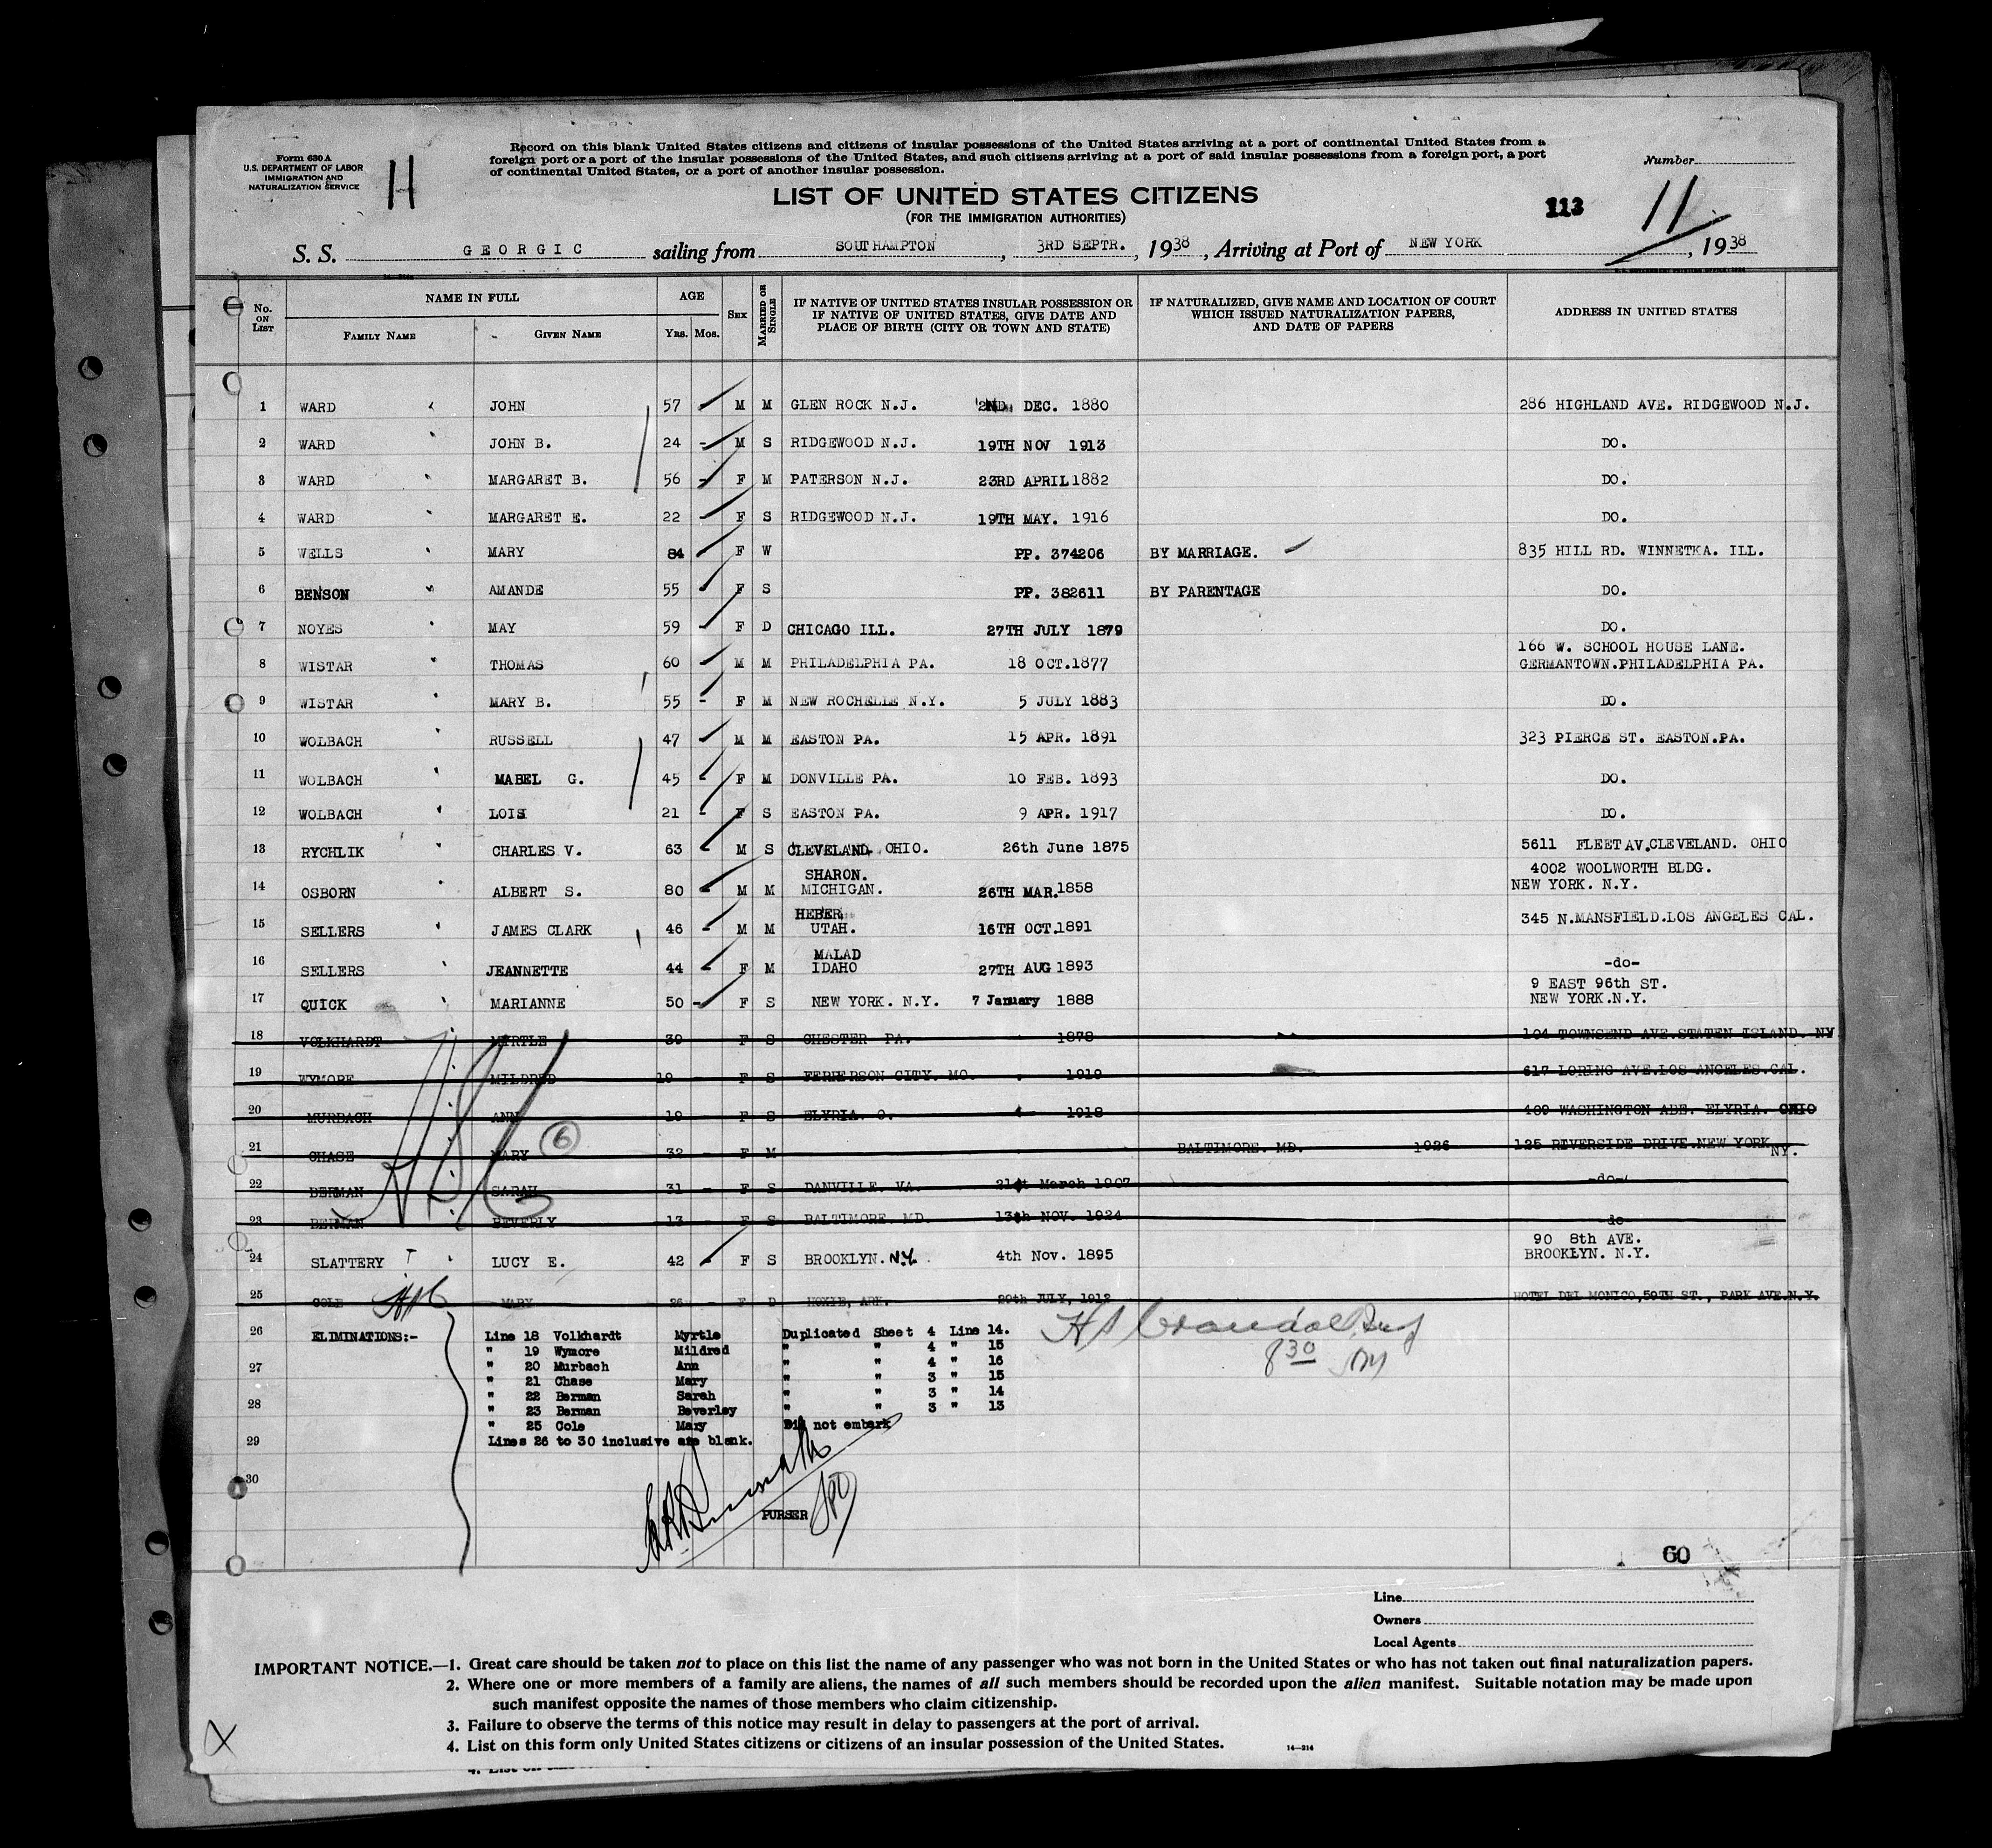 Form 630 A
U.S. DEPARTMENT OF LABOR
IMMIGRATION AND
NATURALIZATION SERVICE
H
Record on this blank United States citizens and citizens of insular possessions of the United States arriving at a port of continental United States from a
foreign port or a port of the insular possessions of the United States, and such citizens arriving at a port of said insular possessions from a foreign port, a port
of continental United States, or a port of another insular possession.
Number
LIST OF UNITED STATES CITIZENS
(FOR THE IMMIGRATION AUTHORITIES)
113
11
S. S. GEORGIC sailing from SOUTHAMPTON, 3RD SEPTR., 1938, Arriving at Port of NEW YORK, 1938
No. ON LIST NAME IN FULL AGE SEX MARRIED OR SINGLE IF NATIVE OF UNITED STATES INSULAR POSSESSION OR IF NATIVE OF UNITED STATES, GIVE DATE AND PLACE OF BIRTH (CITY OR TOWN AND STATE) IF NATURALIZED, GIVE NAME AND LOCATION OF COURT WHICH ISSUED NATURALIZATION PAPERS, AND DATE OF PAPERS ADDRESS IN UNITED STATES
FAMILY NAME GIVEN NAME YRS. MOS.
1 WARD JOHN 57 M M GLEN ROCK N.J. 2ND DEC. 1880 286 HIGHLAND AVE. RIDGEWOOD N.J.
2 WARD JOHN B. 24 - M S RIDGEWOOD N.J. 19TH NOV 1913 DO.
3 WARD MARGARET B. 56 - F M PATERSON N.J. 23RD APRIL 1882 DO.
4 WARD MARGARET E. 22 - F S RIDGEWOOD N.J. 19TH MAY. 1916 DO.
5 WELLS MARY 84 F W PP. 374206 BY MARRIAGE. 835 HILL RD. WINNETKA. ILL.
6 BENSON AMANDE 55 F S PP. 382611 BY PARENTAGE DO.
7 NOYES MAY 59 - F D CHICAGO ILL. 27TH JULY 1879 DO.
166 W. SCHOOL HOUSE LANE.
8 WISTAR THOMAS 60 - M M PHILADELPHIA PA. 18 OCT.1877 GERMANTOWN.PHILADELPHIA PA.
9 WISTAR MARY B. 55 - F M NEW ROCHELLE N.Y. 5 JULY 1883 DO.
10 WOLBACH RUSSELL 47 - M M EASTON PA. 15 APR. 1891 323 PIERCE ST. EASTON.PA.
11 WOLBACH MABEL G. 45 - F M DONVILLE PA. 10 FEB. 1893 DO.
12 WOLBACH LOIS 21 - F S EASTON PA. 9 APR. 1917 DO.
13 RYCHLIK CHARLES V. 63 - M S CLEVELAND. OHIO. 26th June 1875 5611 FLEET AV.CLEVELAND. OHIO
SHARON. 4002 WOOLWORTH BLDG.
14 OSBORN ALBERT S. 80 - M M MICHIGAN. 26TH MAR.1858 NEW YORK. N.Y.
HEBER
15 SELLERS JAMES CLARK 46 - M M UTAH. 16TH OCT.1891 345 N.MANSFIELD.LOS ANGELES CAL.
MALAD
16 SELLERS JEANNETTE 44 - F M IDAHO 27TH AUG 1893 -do-
9 EAST 96th ST.
17 QUICK MARIANNE 50 - F S NEW YORK. N.Y. 7 January 1888 NEW YORK.N.Y.
18 VOLKHARDT MYRTLE 39 F S CHESTER PA. 1878 104 TOWNSEND AVE.STATEN ISLAND. NY
19 WYMORE MILDRED 19 - F S FEFFERSON CITY. MO. 1919 617 LORING AVE.LOS ANGELES.CAL.
20 MURBACH ANN 19 - F S ELYRIA. O. 1918 409 WASHINGTON ADE. ELYRIA. OHIO
6
21 CHASE MARY 32 - F M BALTIMORE. MD. 1926 125 RIVERSIDE DRIVE.NEW YORK NY.
22 BERMAN SARAH 31 - F S DANVILLE. VA. 21st March 1907 -do-
23 BERMAN BEVERLY 13 - F S BALTIMORE. MD. 13th NOV. 1924 -do-
90 8th AVE.
24 SLATTERY LUCY E. 42 - F S BROOKLYN. N.Y. 4th Nov. 1895 BROOKLYN. N.Y.
25 COLE MARY 26 - F D HOXIE, ARK. 29th JULY, 1912 HOTEL DEL MONICO,59TH ST., PARK AVE.N.Y.
26 ELIMINATIONS:- Line 18 Volkhardt Myrtle Duplicated Sheet 4 Line 14.
" 19 Wymore Mildred " " 4 " 15
27 " 20 Murbach Ann " " 4 " 16
" 21 Chase Mary " " 3 " 15
28 " 22 Berman Sarah " " 3 " 14
" 23 Berman Beverley " " 3 " 13
" 25 Cole Mary Did not embark
29 Lines 26 to 30 inclusive are blank.
830
30
PURSER
60
Line
Owners
Local Agents
IMPORTANT NOTICE.—1. Great care should be taken not to place on this list the name of any passenger who was not born in the United States or who has not taken out final naturalization papers.
2. Where one or more members of a family are aliens, the names of all such members should be recorded upon the alien manifest. Suitable notation may be made upon
such manifest opposite the names of those members who claim citizenship.
3. Failure to observe the terms of this notice may result in delay to passengers at the port of arrival.
4. List on this form only United States citizens or citizens of an insular possession of the United States.
14—214
X